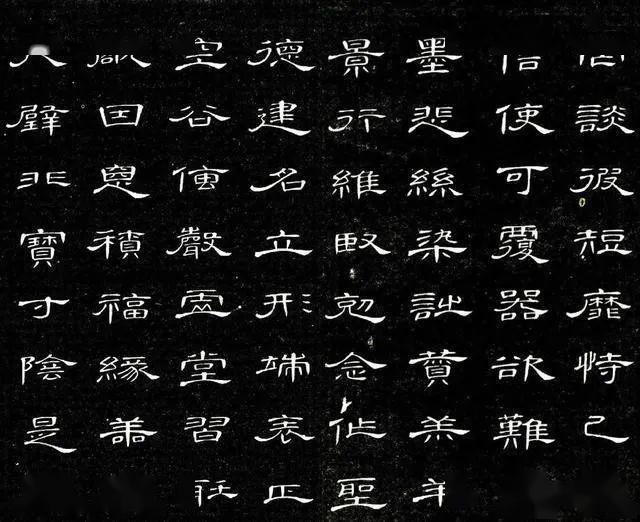 罔談彼短靡恃己
信使可覆器欲難
墨悲絲染詩讚羔羊
景行維賢克念作聖
德建名立形端表正
空谷傳聲虛堂習聽
禍因惡積福緣善
尺璧非寶寸陰是